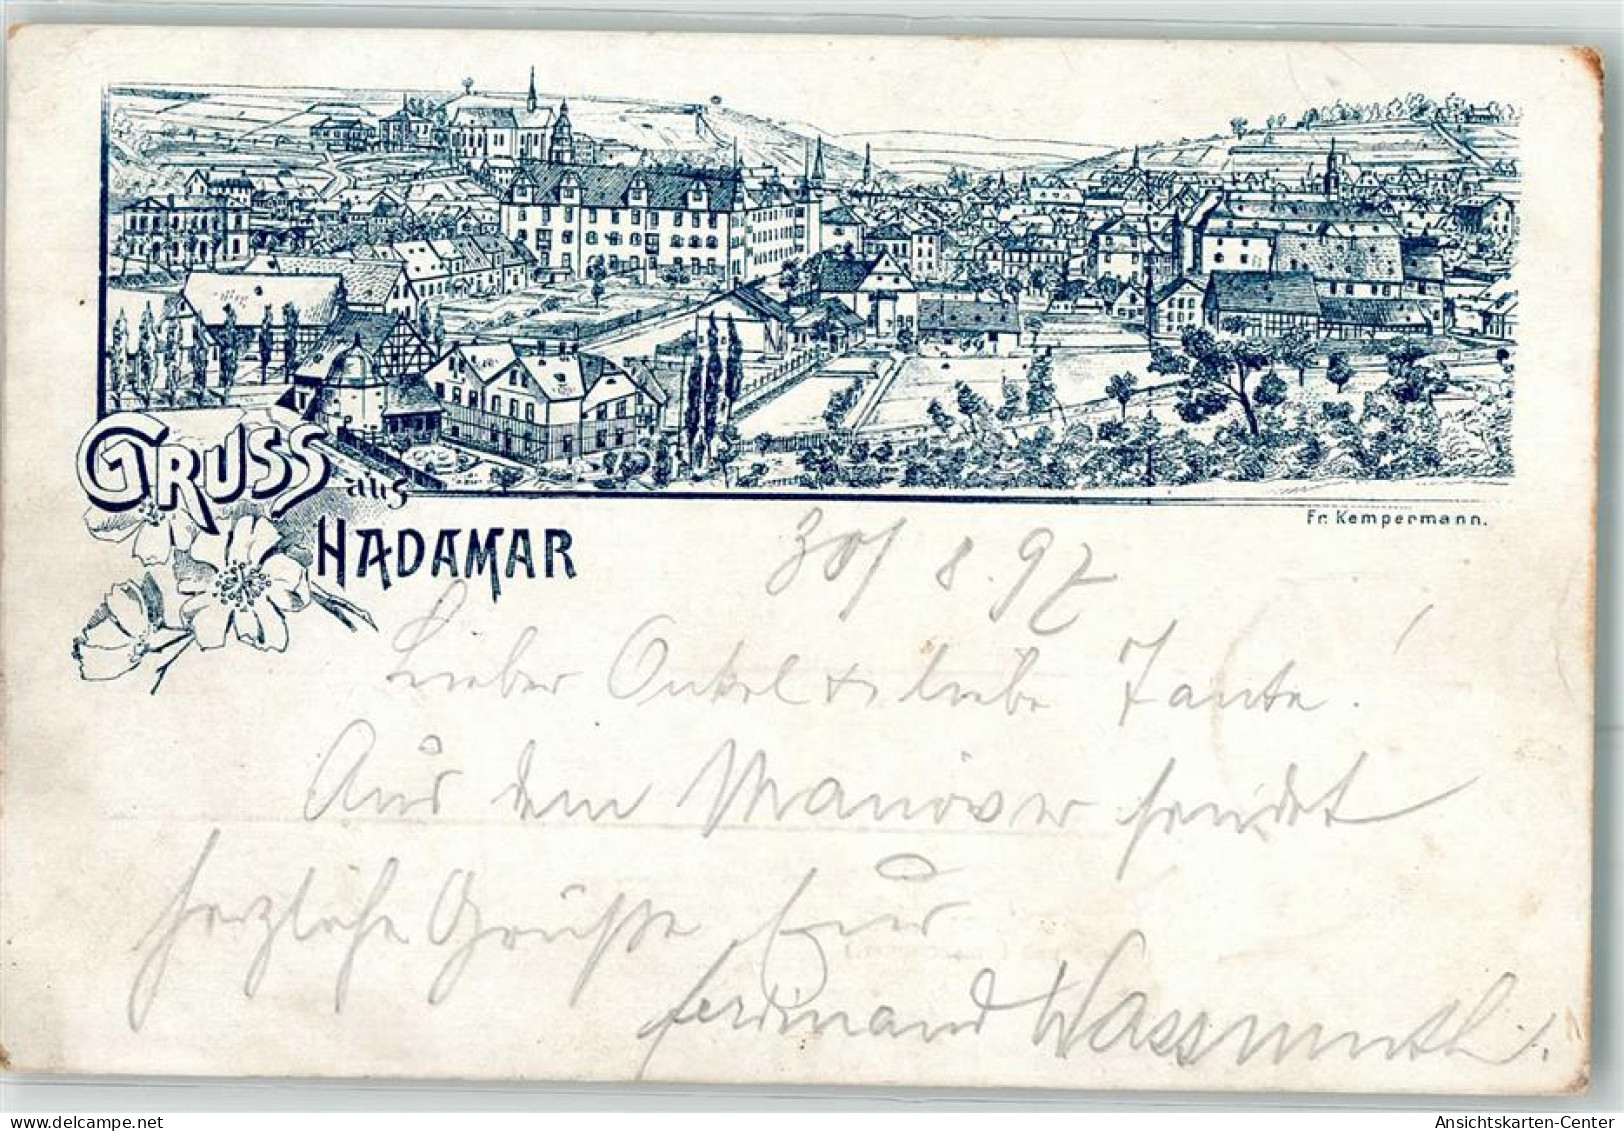 GRUSS aus
HADAMAR
Fr. Kempermann.
30/ 8. 97
Lieber Onkel & liebe Tante!
Aus dem Manöver sendet
herzliche Grüße Euer
Ferdinand Wassmuth.
Ansichtskarten-Center